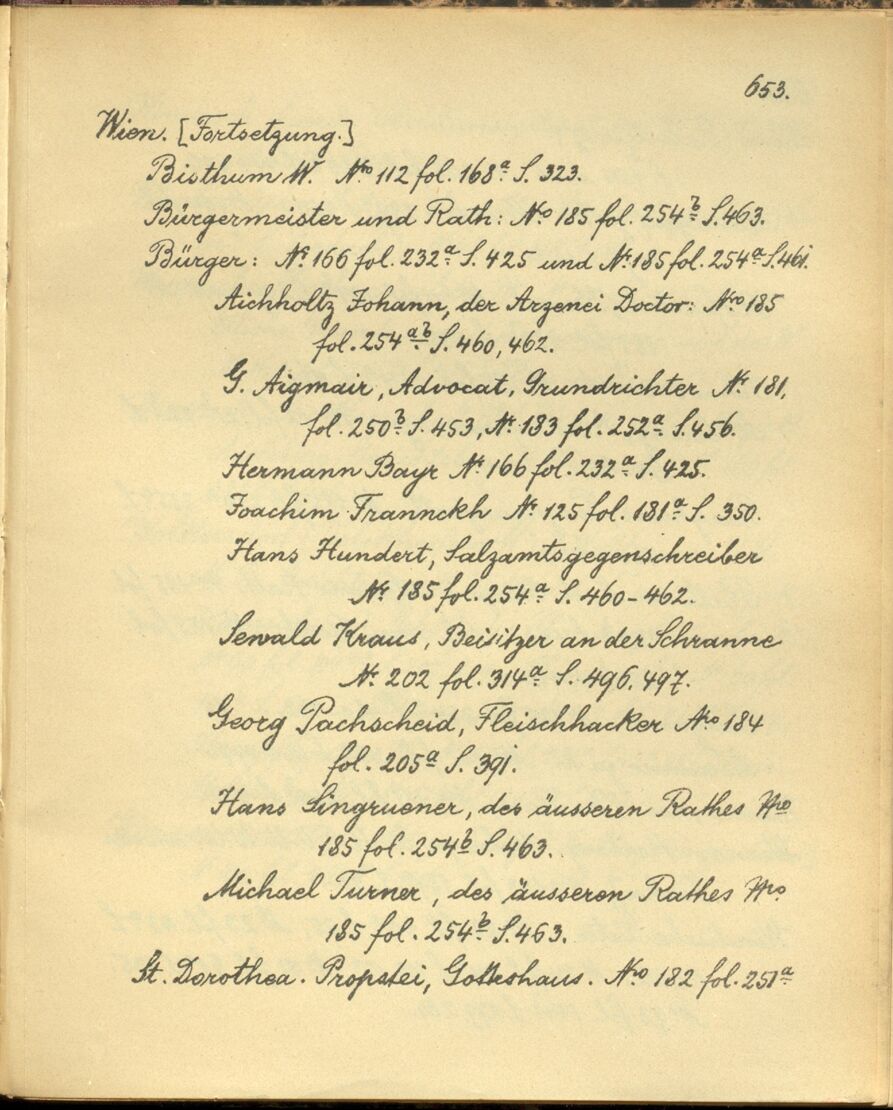 653.
Wien. [Fortsetzung.]
Bisthum W. Nro 112 fol. 168a S. 323.
Bürgermeister und Rath: No 185 fol. 254b S. 463.
Bürger: Nr 166 fol. 232a S. 425 und Nr. 185 fol. 254a S. 461.
Aichholtz Johann, der Arzenei Doctor: Nro 185
fol. 254 a b S. 460, 462.
G. Aigmair, Advocat, Grundrichter Nr. 181,
fol. 250b S. 453, Nr. 183 fol. 252a S. 456.
Hermann Bayr Nr 166 fol. 232a S. 425.
Joachim Frannckh Nr. 125 fol. 181a S. 350.
Hans Hundert, Salzamtsgegenschreiber
Nr 185 fol. 254a S. 460-462.
Sewald Kraus, Beisitzer an der Schranne
Nr. 202 fol. 314a S. 496. 497.
Georg Pachscheid, Fleischhacker Nro 184
fol. 205a S. 391.
Hans Singruener, des äusseren Rathes Nro
185 fol. 254b S. 463.
Michael Turner, des äusseren Rathes Nro
185 fol. 254b S. 463.
St. Dorothea. Propstei, Gotteshaus. Nro 182 fol. 251a